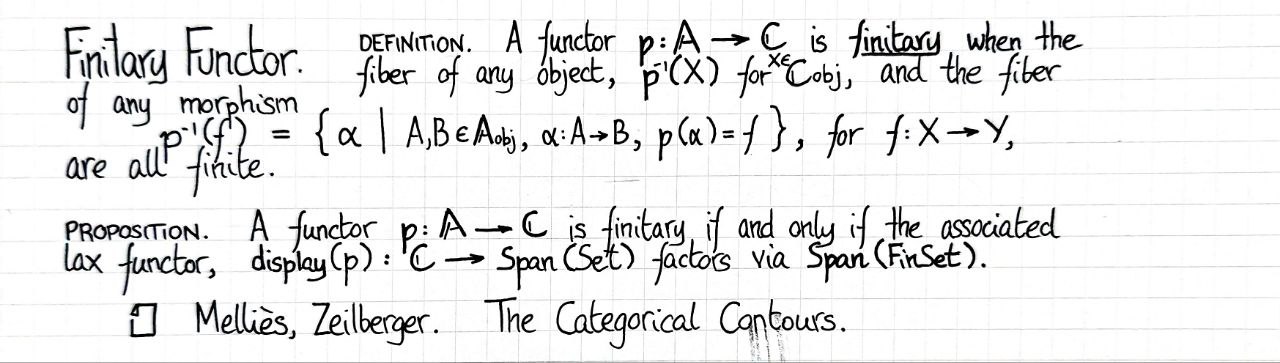 Finitary Functor.
DEFINITION. A functor p: 𝔸 → ℂ is finitary when the
fiber of any object, p⁻¹(X) for X∈ℂobj, and the fiber
of any morphism
p⁻¹(f) = {α | A,B∈𝔸obj, α:A→B, p(α)=f}, for f:X→Y,
are all finite.
PROPOSITION. A functor p: 𝔸 → ℂ is finitary if and only if the associated
lax functor, display(p): ℂ → Span(Set) factors via Span(FinSet).
Melliès, Zeilberger. The Categorical Contours.